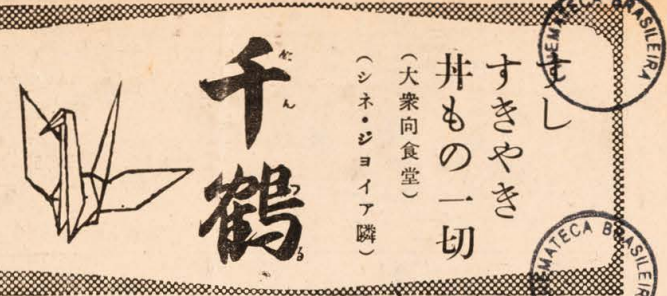 すし
すきやき
丼もの一切
（大衆向食堂）
（シネ・ジョイア隣）
千鶴
せん
つる
CINEMATECA BRASILEIRA
CINEMATECA BRASILEIRA